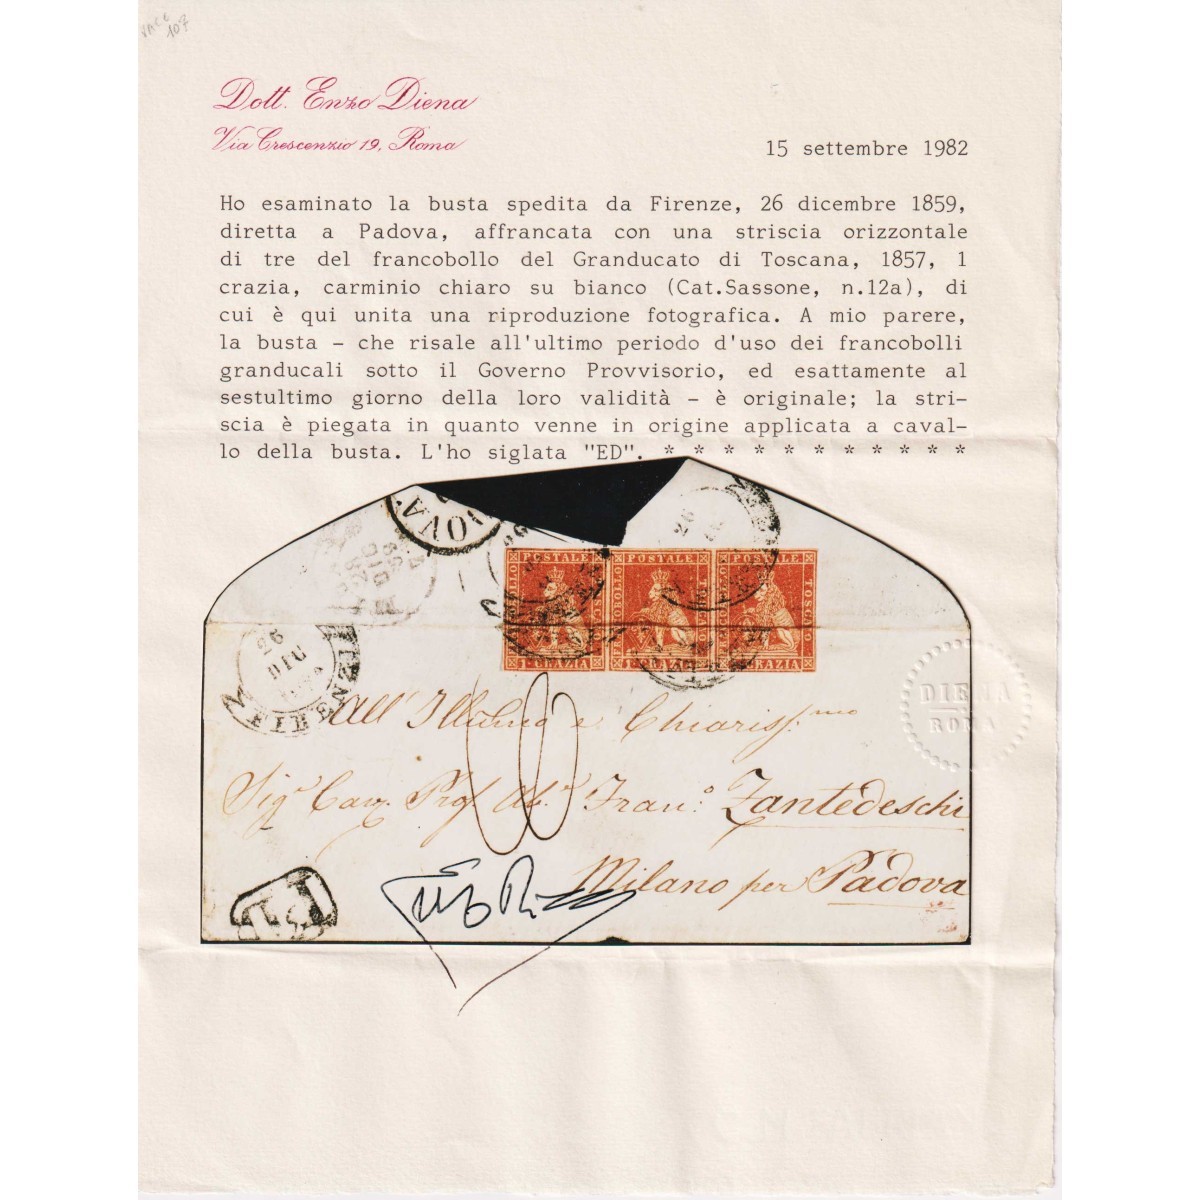 107
Dott. Enzo Diena
Via Crescenzio 19, Roma
15 settembre 1982
Ho esaminato la busta spedita da Firenze, 26 dicembre 1859,
diretta a Padova, affrancata con una striscia orizzontale
di tre del francobollo del Granducato di Toscana, 1857, 1
crazia, carminio chiaro su bianco (Cat.Sassone, n.12a), di
cui è qui unita una riproduzione fotografica. A mio parere,
la busta - che risale all'ultimo periodo d'uso dei francobolli
granducali sotto il Governo Provvisorio, ed esattamente al
sestultimo giorno della loro validità - è originale; la stri-
scia è piegata in quanto venne in origine applicata a caval-
lo della busta. L'ho siglata "ED". * * * * * * * * * * * * *
OVA
26
POSTALE POSTALE POSTALE
TOSCANO
1 CRAZIA 1 CRAZIA CRAZIA
26
DIC
FIRENZE
DIENA
ROMA
All' Illmo e Chiariss.mo
Sigr Cav. Prof. Ab. Fran.o Zantedeschi
Milano per Padova